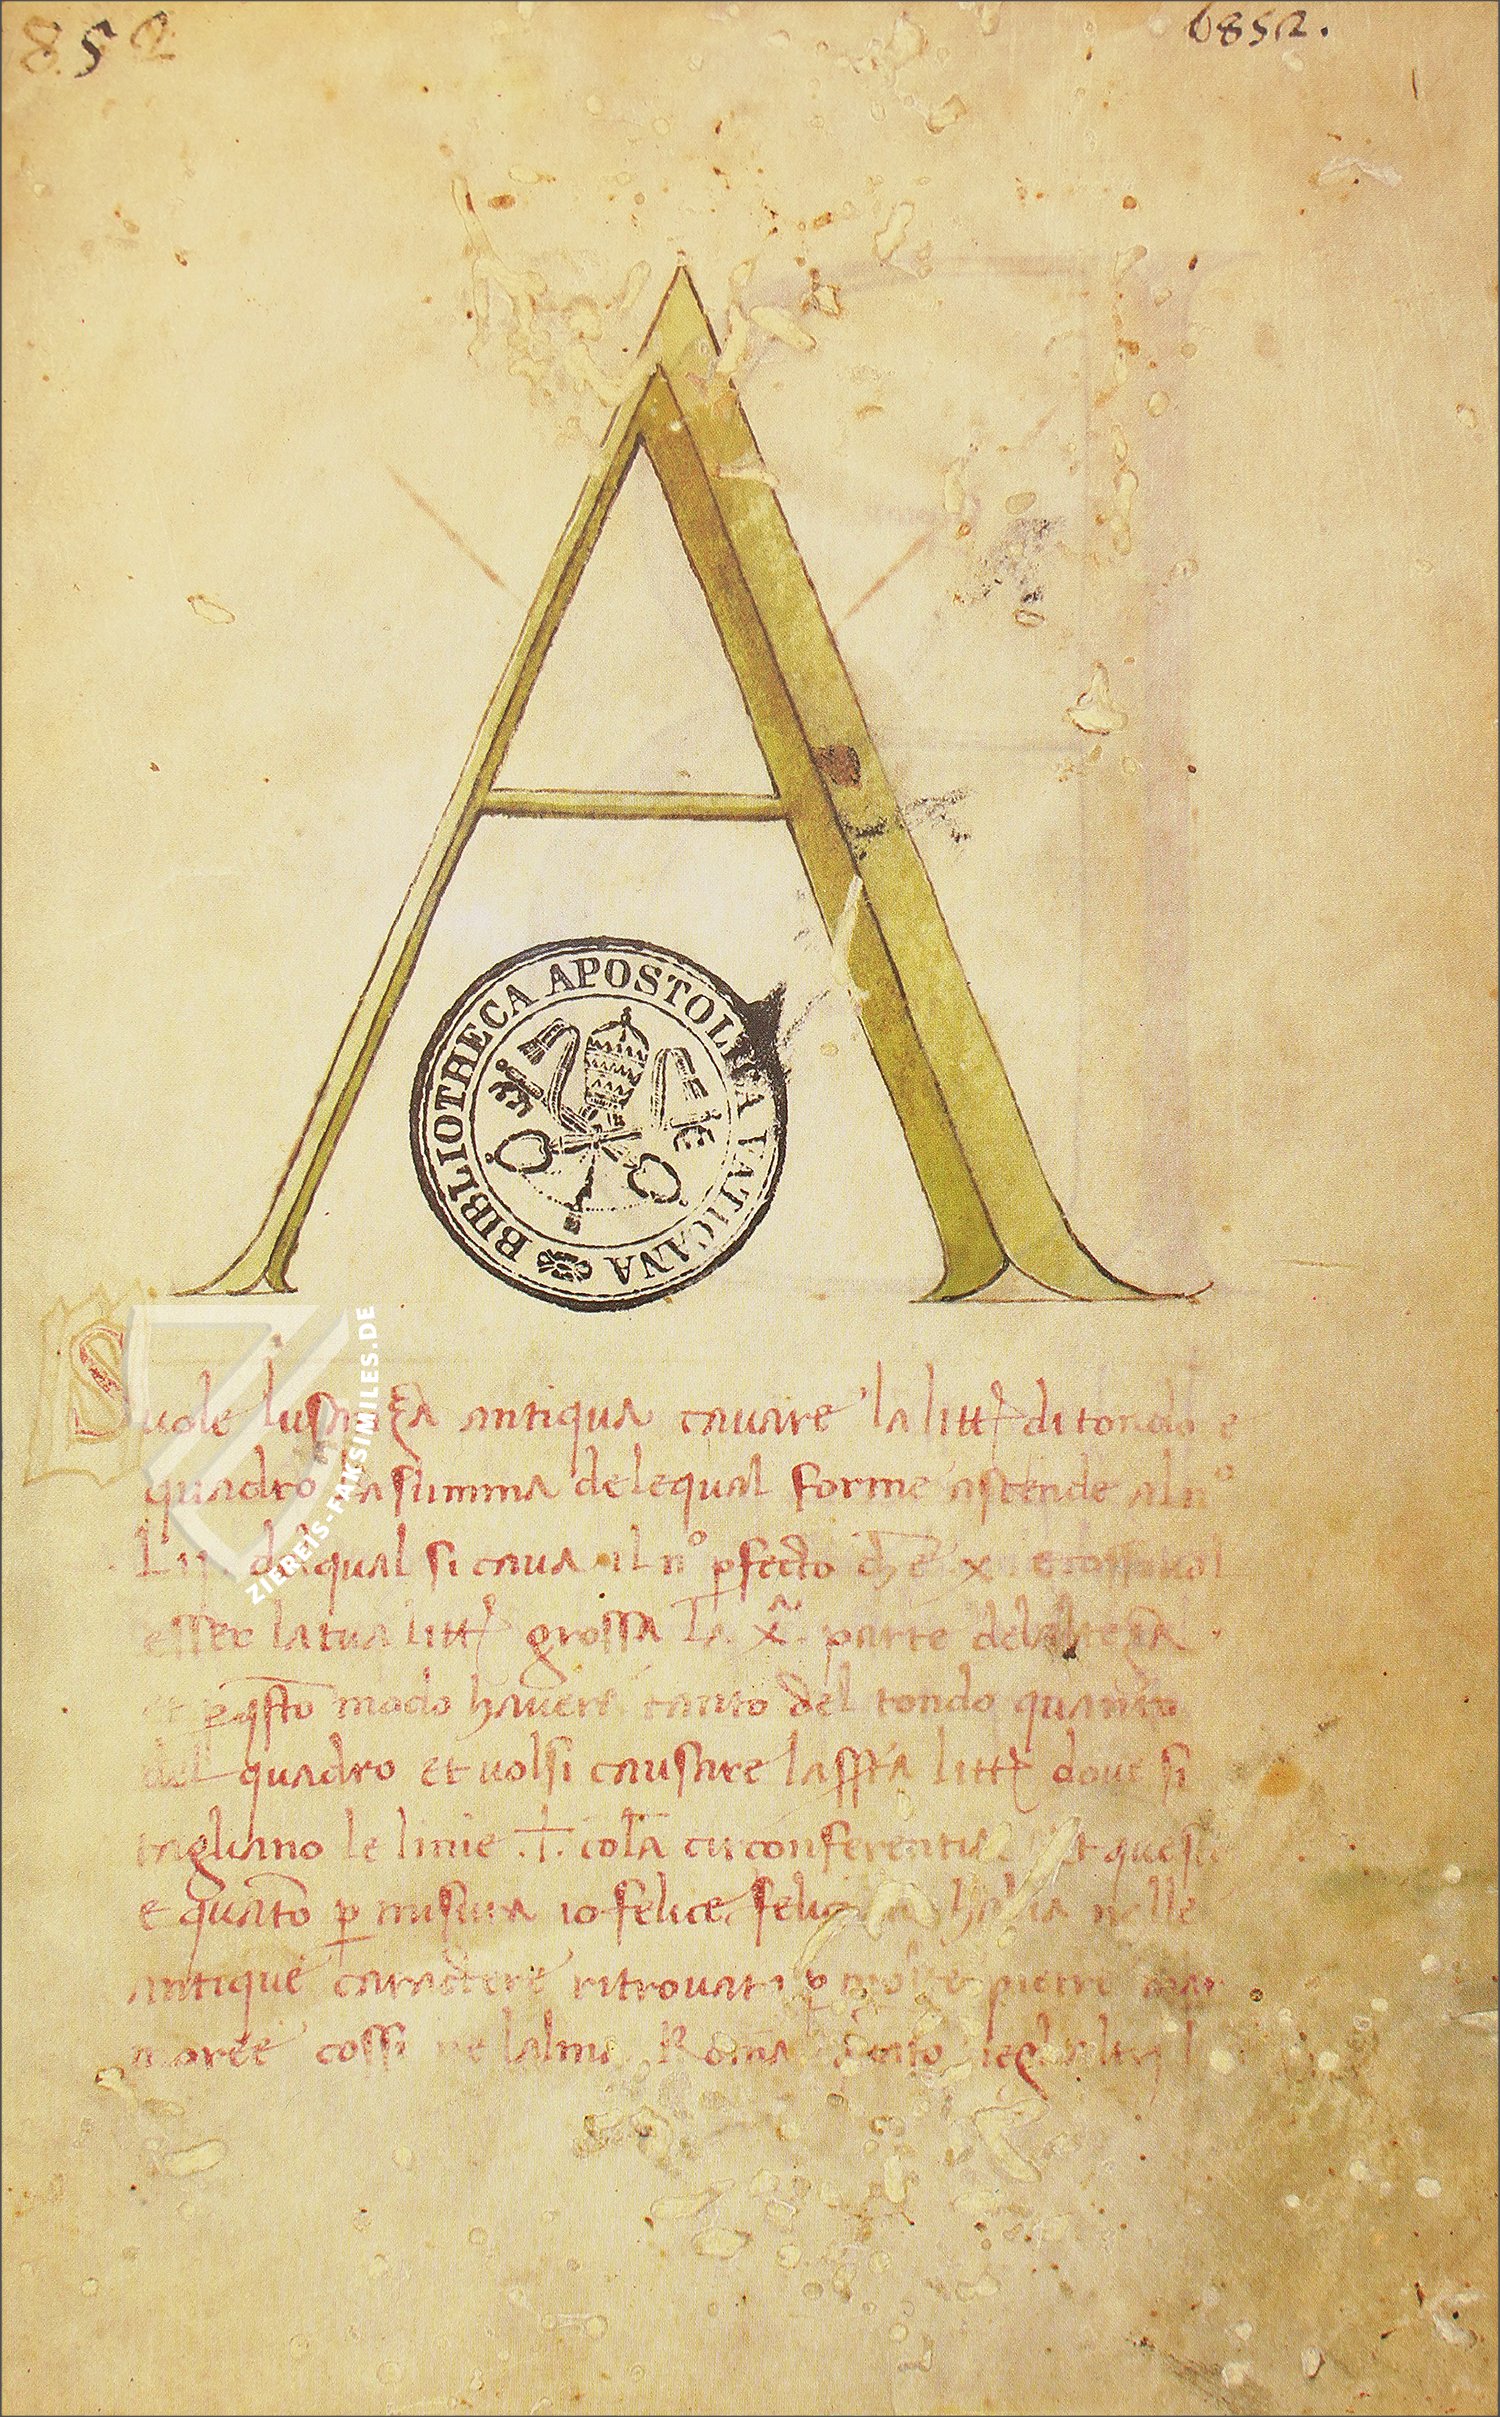 852
6852.
A
BIBLIOTHECA APOSTOLICA VATICANA
ZIEREIS-FAKSIMILES.DE
Suole lusanza antiqua cavare la litt di tondo e
quadro la summa dele qual forme ascende al nº
Lij. del qual si cava il nº pfecto che e x. e cossi vol
esser la tua litt grossa la x. parte del alteza
et p qsto modo havera tanto del tondo quanto
del quadro et volsi causare la ssta litt dove si
tagliano le linie .+. cola circonferentia Et questo
e quato p misura io felice felic habia nelle
antique caractere ritrovati p pietre mar
moree cossi ne lalma Roma